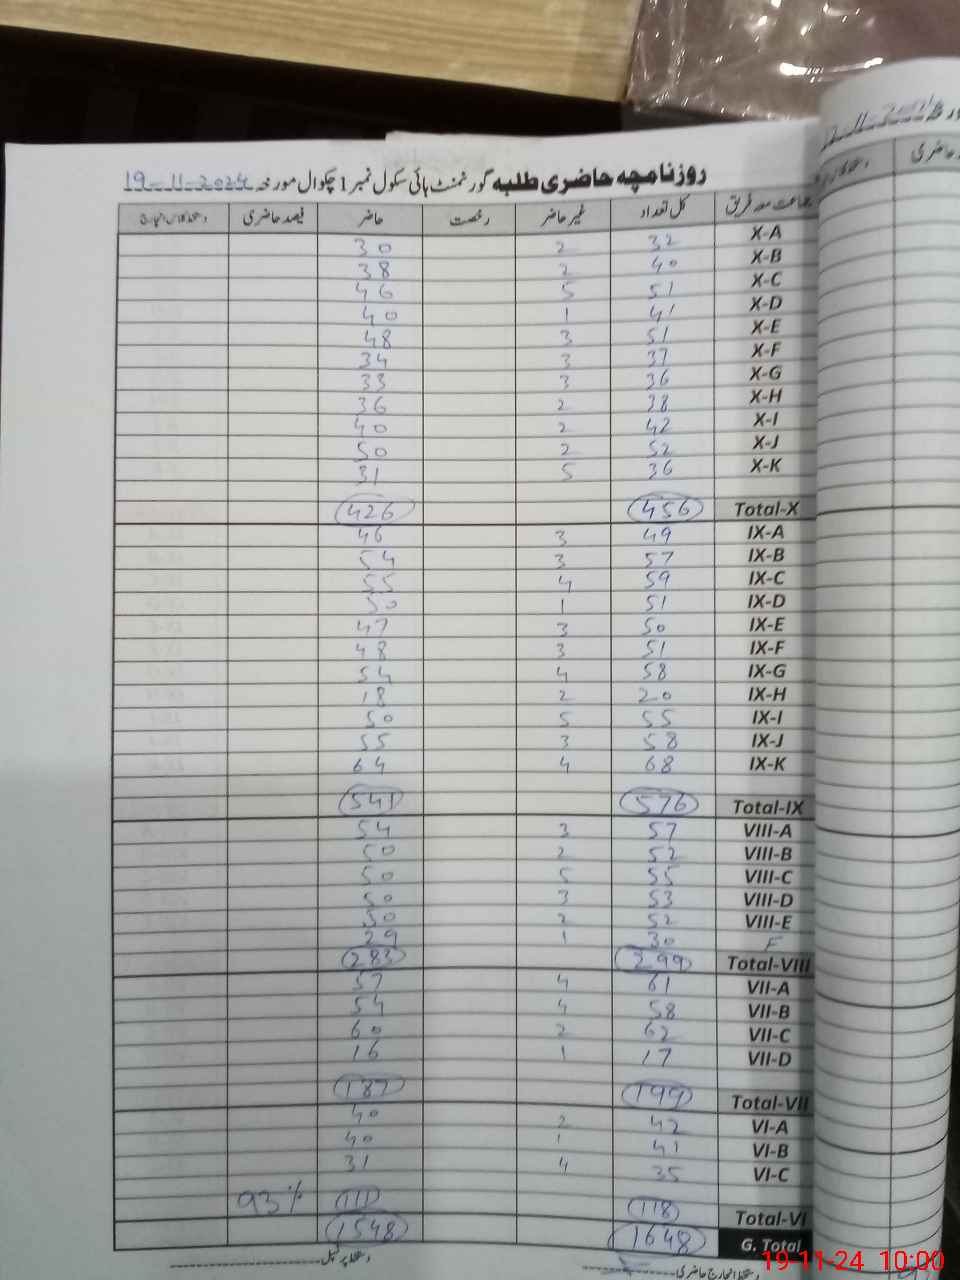 روزنامچہ حاضری طلبہ گورنمنٹ ہائی سکول نمبر 1 چکوال مورخہ 19-11-2024
جماعت معہ فریق کل تعداد غیر حاضر رخصت حاضر فیصد حاضری
X-A 32 2 30
X-B 40 2 38
X-C 51 5 46
X-D 41 1 40
X-E 51 3 48
X-F 37 3 34
X-G 36 3 33
X-H 38 2 36
X-I 42 2 40
X-J 52 2 50
X-K 36 5 31
Total-X 456 426
IX-A 49 3 46
IX-B 57 3 54
IX-C 59 4 55
IX-D 51 1 50
IX-E 50 3 47
IX-F 51 3 48
IX-G 58 4 54
IX-H 20 2 18
IX-I 55 5 50
IX-J 58 3 55
IX-K 68 4 64
Total-IX 576 541
VIII-A 57 3 54
VIII-B 52 2 50
VIII-C 55 5 50
VIII-D 53 3 50
VIII-E 52 2 50
F 30 1 29
Total-VIII 299 283
VII-A 61 4 57
VII-B 58 4 54
VII-C 62 2 60
VII-D 17 1 16
Total-VII 199 187
VI-A 42 2 40
VI-B 41 1 40
VI-C 35 4 31
Total-VI 118 111 93%
G. Total 1648 1548
دستخط انچارج حاضری
دستخط پرنسپل
19-11-24 10:00